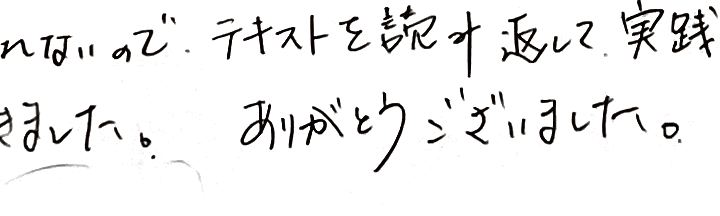 れないので、テキストを読み返して、実践
きました。 ありがとうございました。